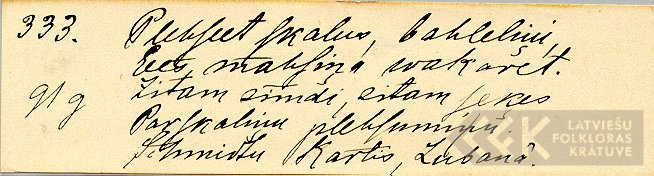 333. Plehseet skalus, bahlelini,
Ees mahsiņa wakarēt.
91 g Zitam zimdi, zitam zekes
Par skalinu plehsuminu.
Schmidtu Karlis, Lubanā.
LATVIEŠU
FOLKLORAS
KRĀTUVE